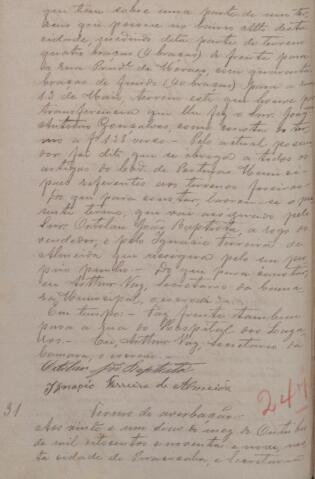 que tem sobre uma parte de um ter-
reno que possue no bairro Alto desta
cidade, medindo dita parte de terreno
quatro braças (4 braças) de frente para
a rua Prudte de Moraes, com quarenta
braças de fundo (40 braças) para a rua
13 de Maio, terreno este que houve por
transferencia que lhe fez o Snr. João
Gonsalves, como consta do
a fs 138 verso - Pelo actual possui-
dor foi dito que se obrega a todos os
artigos do Cod. de Posturas Munici-
paes referentes aos terrenos foreiros
Do que para constar, lavrou-se o pre-
sente termo, que vai assignado pelo
Snr. João Baptista, a rogo do
vendedor, e pelo Ignacio Ferreira de
Almeida que assigna pelo seu pro-
prio punho - Do que para constar,
eu Arthur Vaz, secretario da Cama-
ra Municipal, o escrevi
Em tempo: - Faz frente tambem
para a rua do Hospital dos Laza-
ros. - Eu, Arthur Vaz, Secretario da
Camara, o escrevi
João Baptista
Ignacio Ferreira de Almeida
247
31 Termo de averbação
Aos vinte e um dias do mez de Outubro
de mil oitocentos e noventa e nove, nes-
ta cidade de Piracicaba, e Secretaria